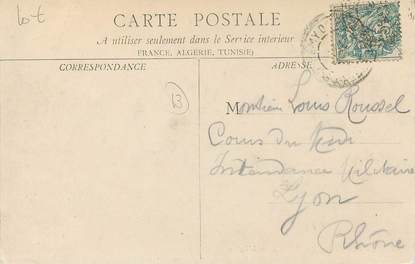 Lot
CARTE POSTALE
A utiliser seulement dans le Service intérieur
FRANCE, ALGÉRIE, TUNISIE)
CORRESPONDANCE
ADRESSE
13
Monsieur Louis Roussel
Cours du Midi
Intendance Militaire
Lyon
Rhône